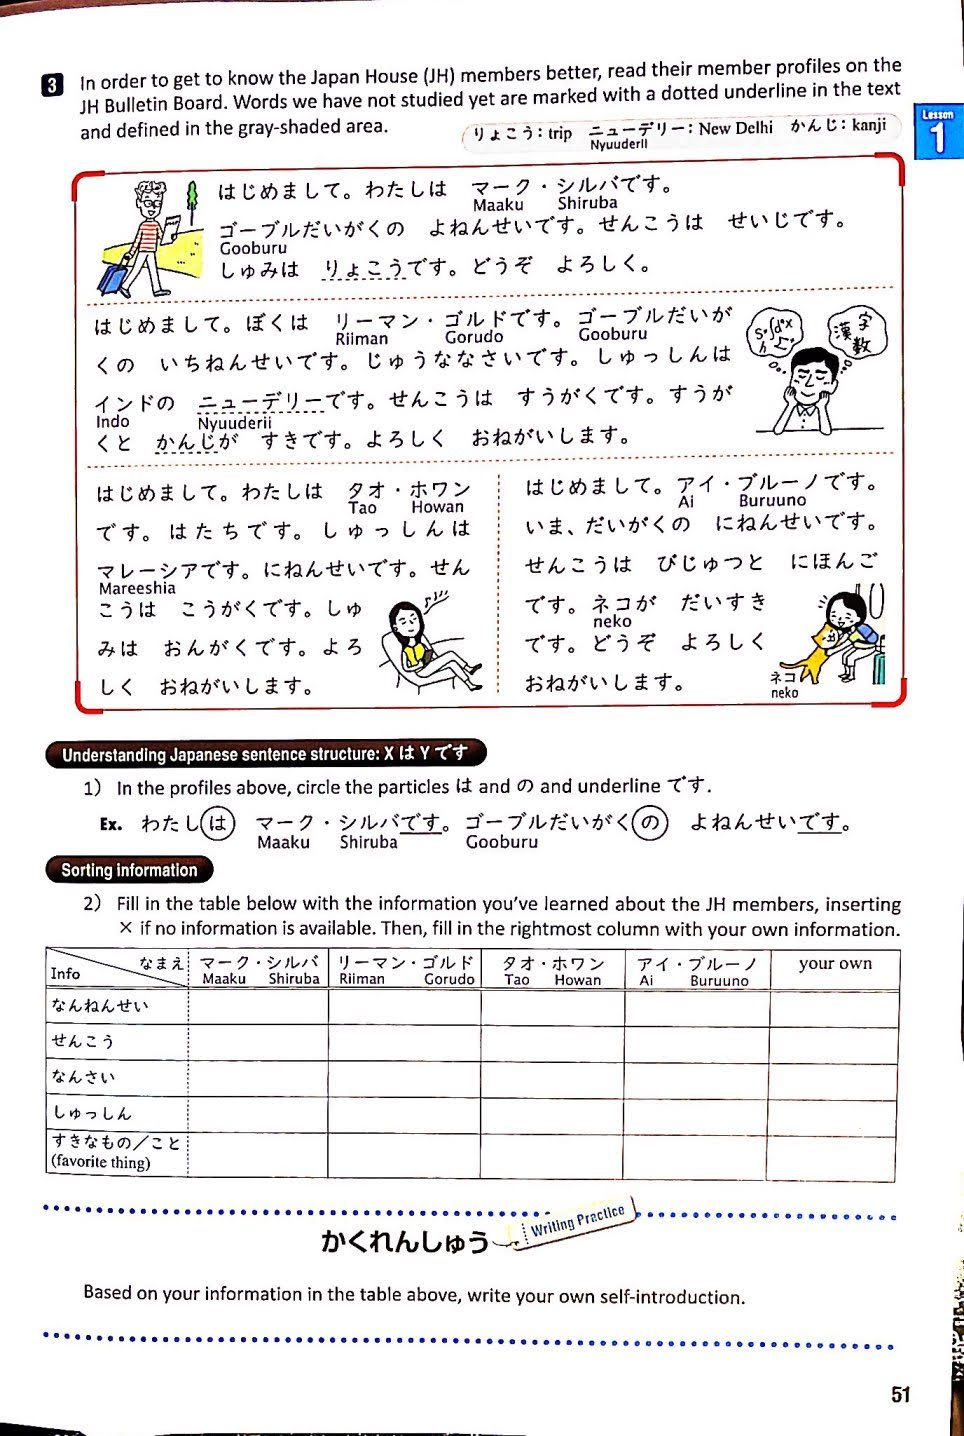 3 In order to get to know the Japan House (JH) members better, read their member profiles on the
JH Bulletin Board. Words we have not studied yet are marked with a dotted underline in the text
and defined in the gray-shaded area.
りょこう：trip ニューデリー：New Delhi かんじ：kanji
Nyuuderii
Lesson
1
はじめまして。わたしは マーク・シルバです。
Maaku Shiruba
ゴーブルだいがくの よねんせいです。せんこうは せいじです。
Gooburu
しゅみは りょこうです。どうぞ よろしく。
はじめまして。ぼくは リーマン・ゴルドです。ゴーブルだいが
Riiman Gorudo Gooburu
くの いちねんせいです。じゅうななさいです。しゅっしんは
インドの ニューデリーです。せんこうは すうがくです。すうが
Indo Nyuuderii
くと かんじが すきです。よろしく おねがいします。
漢字
数
はじめまして。わたしは タオ・ホワン
Tao Howan
です。はたちです。しゅっしんは
マレーシアです。にねんせいです。せん
Mareeshia
こうは こうがくです。しゅ
みは おんがくです。よろ
しく おねがいします。
はじめまして。アイ・ブルーノです。
Ai Buruuno
いま、だいがくの にねんせいです。
せんこうは びじゅつと にほんご
です。ネコが だいすき
neko
です。どうぞ よろしく
おねがいします。
ネコ
neko
Understanding Japanese sentence structure: X は Y です
1) In the profiles above, circle the particles は and の and underline です.
Ex. わたしは マーク・シルバです。ゴーブルだいがくの よねんせいです。
Maaku Shiruba Gooburu
Sorting information
2) Fill in the table below with the information you've learned about the JH members, inserting
× if no information is available. Then, fill in the rightmost column with your own information.
Info なまえ マーク・シルバ リーマン・ゴルド タオ・ホワン アイ・ブルーノ your own
Maaku Shiruba Riiman Gorudo Tao Howan Ai Buruuno
なんねんせい
せんこう
なんさい
しゅっしん
すきなもの／こと
(favorite thing)
かくれんしゅう Writing Practice
Based on your information in the table above, write your own self-introduction.
51